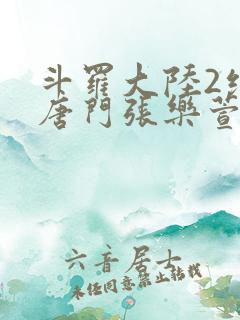 斗羅大陸2
唐門張樂萱
六音居士
未經同意禁止轉載